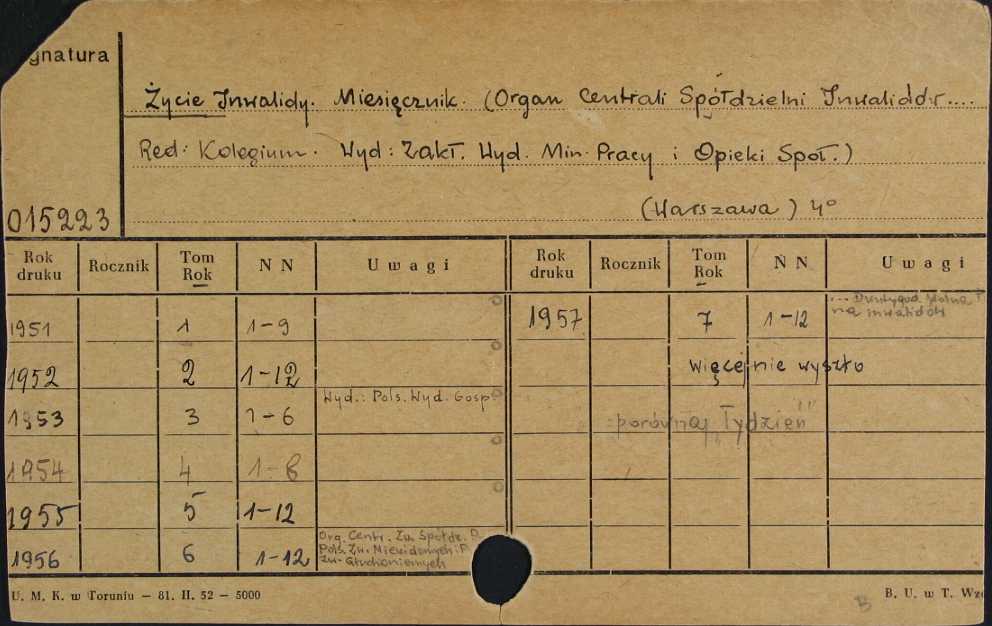 gnatura
Życie Inwalidy. Miesięcznik. (Organ Centrali Spółdzielni Inwalidów....
Red: Kolegium. Wyd: Zakł. Wyd. Min. Pracy i Opieki Społ.)
(Warszawa) 4°
015223
Rok druku Rocznik Tom Rok N N Uwagi Rok druku Rocznik Tom Rok N N Uwagi
1951 1 1-9 1957 7 1-12 ...
na inwalidów
1952 2 1-12 więcej nie wyszło
Wyd.: Pols. Wyd. Gosp.
1953 3 1-6 porównaj „Tydzień”
1954 4 1-8
1955 5 1-12
Org. Centr. Zw. Spółdz.
Pols. Zw. Niewidomych i P.
1956 6 1-12 Zw. Głuchoniemych
U. M. K. w Toruniu — 81. II. 52 — 5000 B B. U. w T. Wzó